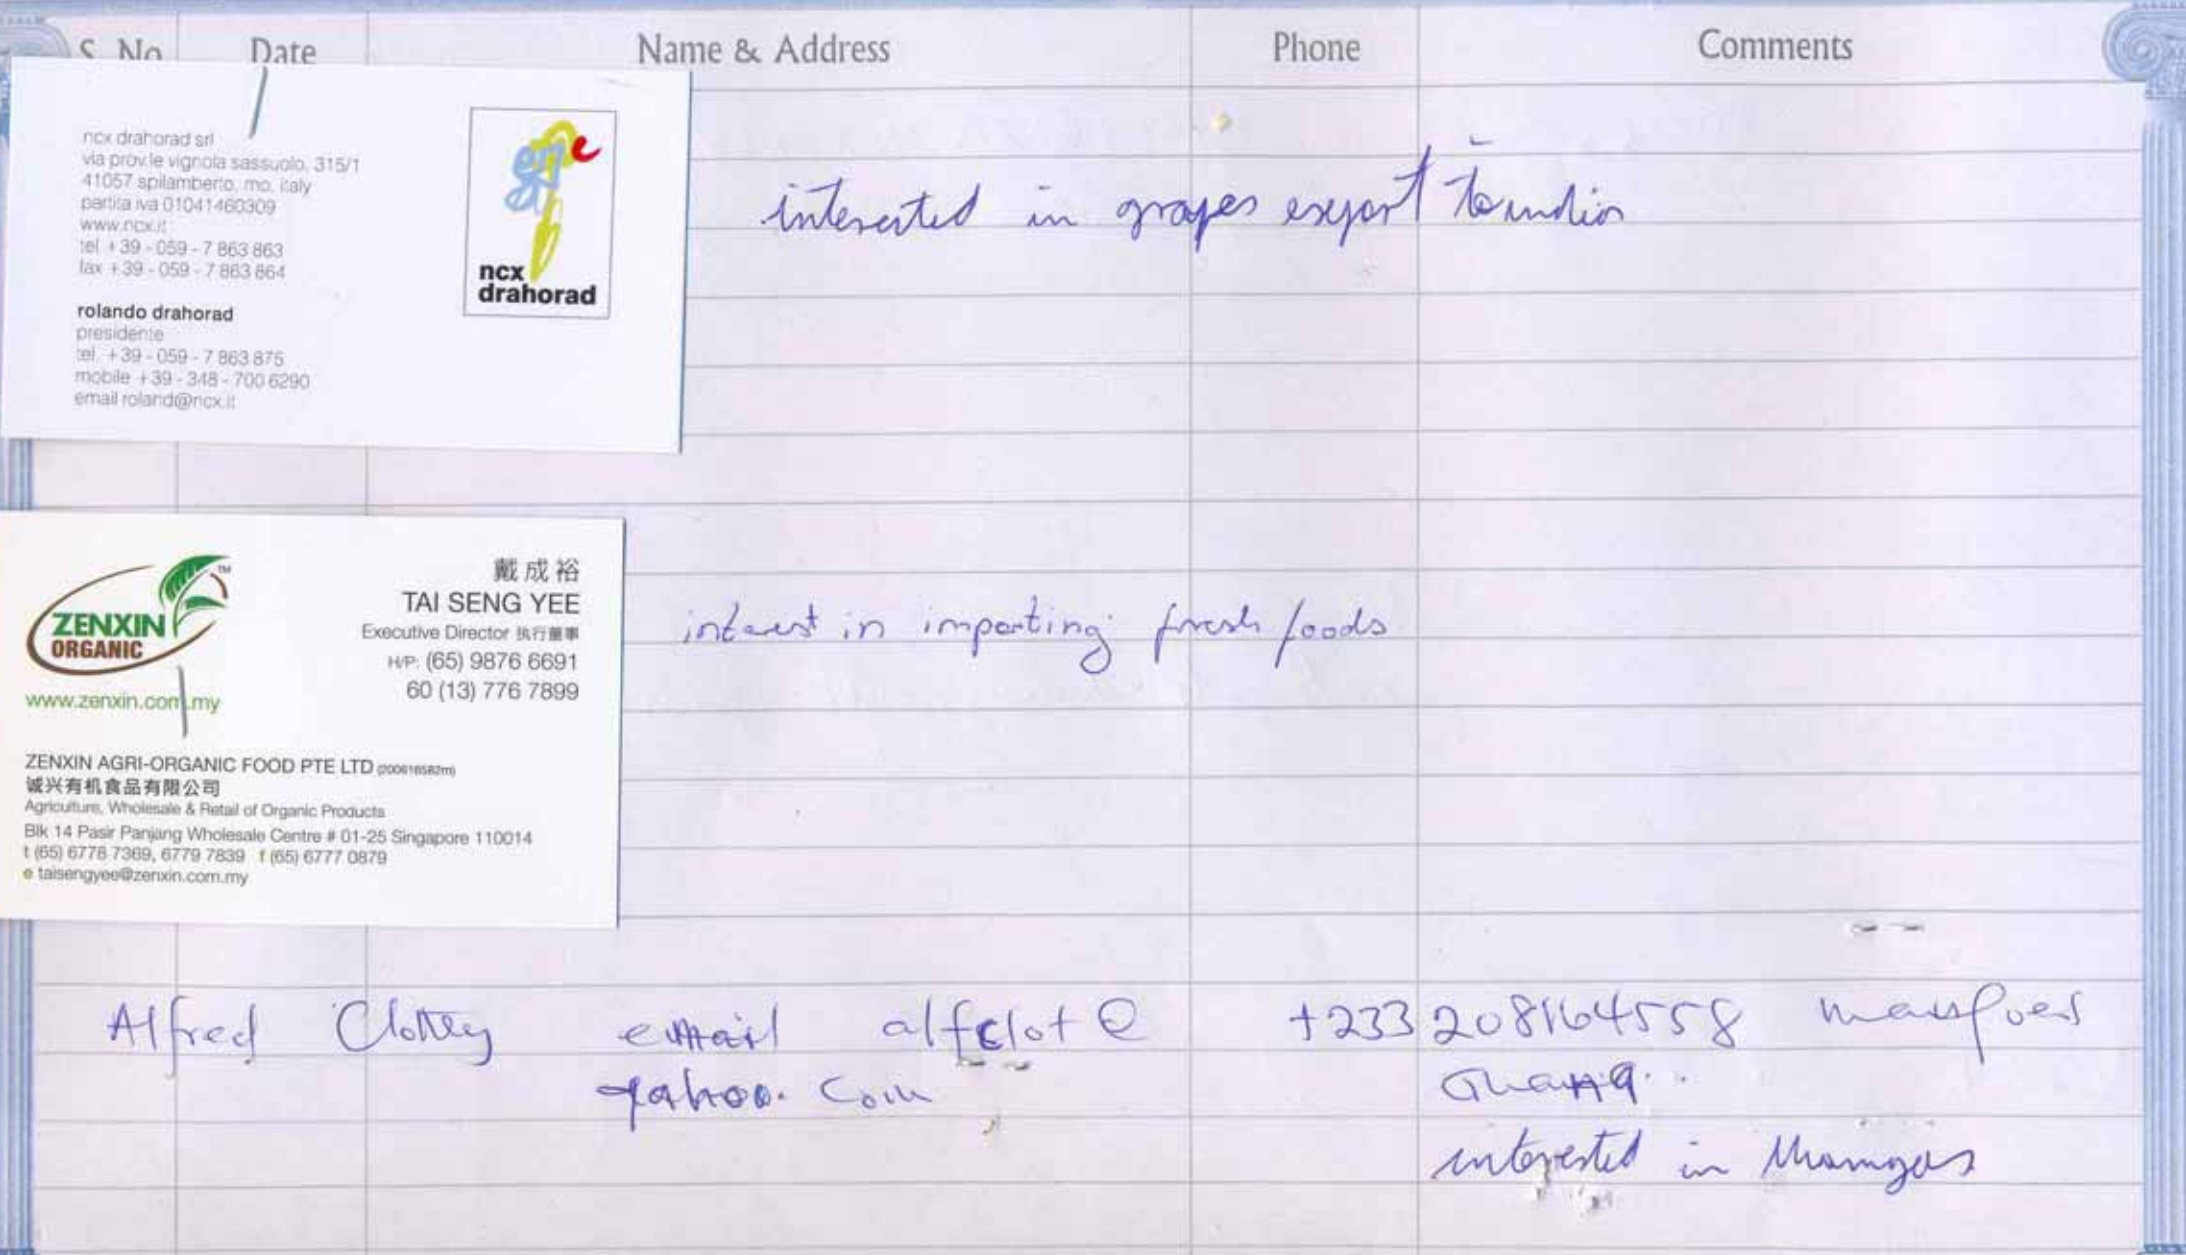 S. No Date Name & Address Phone Comments
ncx drahorad srl
via prov.le vignola sassuolo, 315/1
41057 spilamberto, mo, italy
partita iva 01041460309
www.ncx.it
tel. +39 - 059 - 7 863 863
fax +39 - 059 - 7 863 864
rolando drahorad
presidente
tel. +39 - 059 - 7 863 875
mobile +39 - 348 - 700 6290
email roland@ncx.it
ncx
drahorad
interested in grapes export to india
ZENXIN
ORGANIC
TM
www.zenxin.com.my
戴成裕
TAI SENG YEE
Executive Director 执行董事
H/P: (65) 9876 6691
60 (13) 776 7899
ZENXIN AGRI-ORGANIC FOOD PTE LTD (200616582m)
诚兴有机食品有限公司
Agriculture, Wholesale & Retail of Organic Products
Blk 14 Pasir Panjang Wholesale Centre # 01-25 Singapore 110014
t (65) 6778 7369, 6779 7839 f (65) 6777 0879
e taisengyee@zenxin.com.my
interest in importing fresh foods
Alfred Clottey email alfclot @ +233 208164558
yahoo. com Ghana.
interested in Mangoes